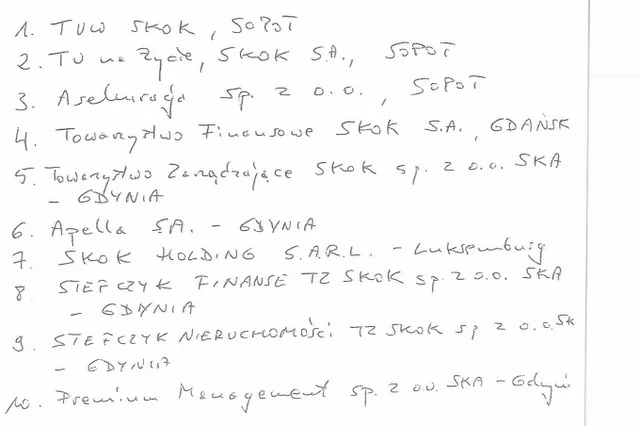 1. TUW SKOK, SOPOT
2. TU na Życie, SKOK S.A., SOPOT
3. Asekuracja sp. z o.o., SOPOT
4. Towarzystwo Finansowe SKOK S.A., GDAŃSK
5. Towarzystwo Zarządzające SKOK sp. z o.o. SKA
– GDYNIA
6. Apella S.A. – GDYNIA
7. SKOK HOLDING S.A.R.L. – Luksemburg
8 STEFCZYK FINANSE TZ SKOK sp. z o.o. SKA
– GDYNIA
9. STEFCZYK NIERUCHOMOŚCI TZ SKOK sp z o.o. SK
– GDYNIA
10. Premium Management sp. z o.o. SKA – Gdyni